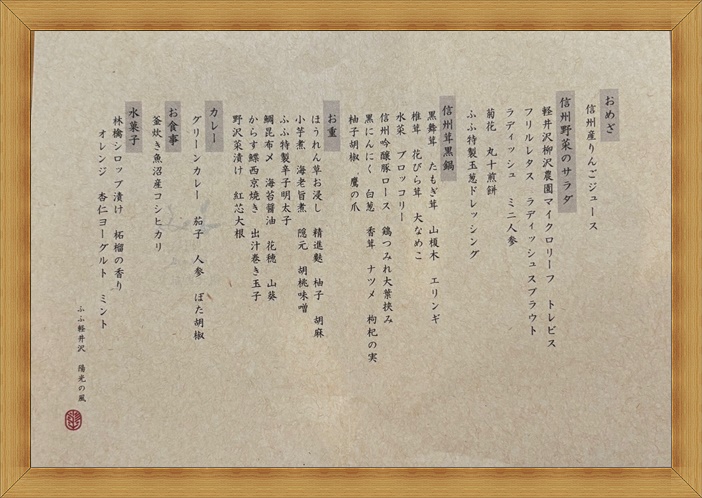 おめざ
信州産りんごジュース
信州野菜のサラダ
軽井沢柳沢農園マイクロリーフ　トレビス
フリルレタス　ラディッシュスプラウト
ラディッシュ　ミニ人参
菊花　丸十煎餅
ふふ特製玉葱ドレッシング
信州茸黒鍋
黒舞茸　たもぎ茸　山榎木　エリンギ
椎茸　花びら茸　大なめこ
水菜　ブロッコリー
信州吟醸豚ロース　鶏つみれ大葉挟み
黒にんにく　白葱　香茸　ナツメ　枸杞の実
柚子胡椒　鷹の爪
お重
ほうれん草お浸し　精進麩　柚子　胡麻
小芋煮　海老旨煮　隠元　胡桃味噌
ふふ特製辛子明太子
鯛昆布〆　海苔醤油　花穂　山葵
からす鰈西京焼き　出汁巻き玉子
野沢菜漬け　紅芯大根
カレー
グリーンカレー　茄子　人参　ぼた胡椒
お食事
釜炊き魚沼産コシヒカリ
水菓子
林檎シロップ漬け　柘榴の香り
オレンジ　杏仁ヨーグルト　ミント
ふふ軽井沢　陽光の風